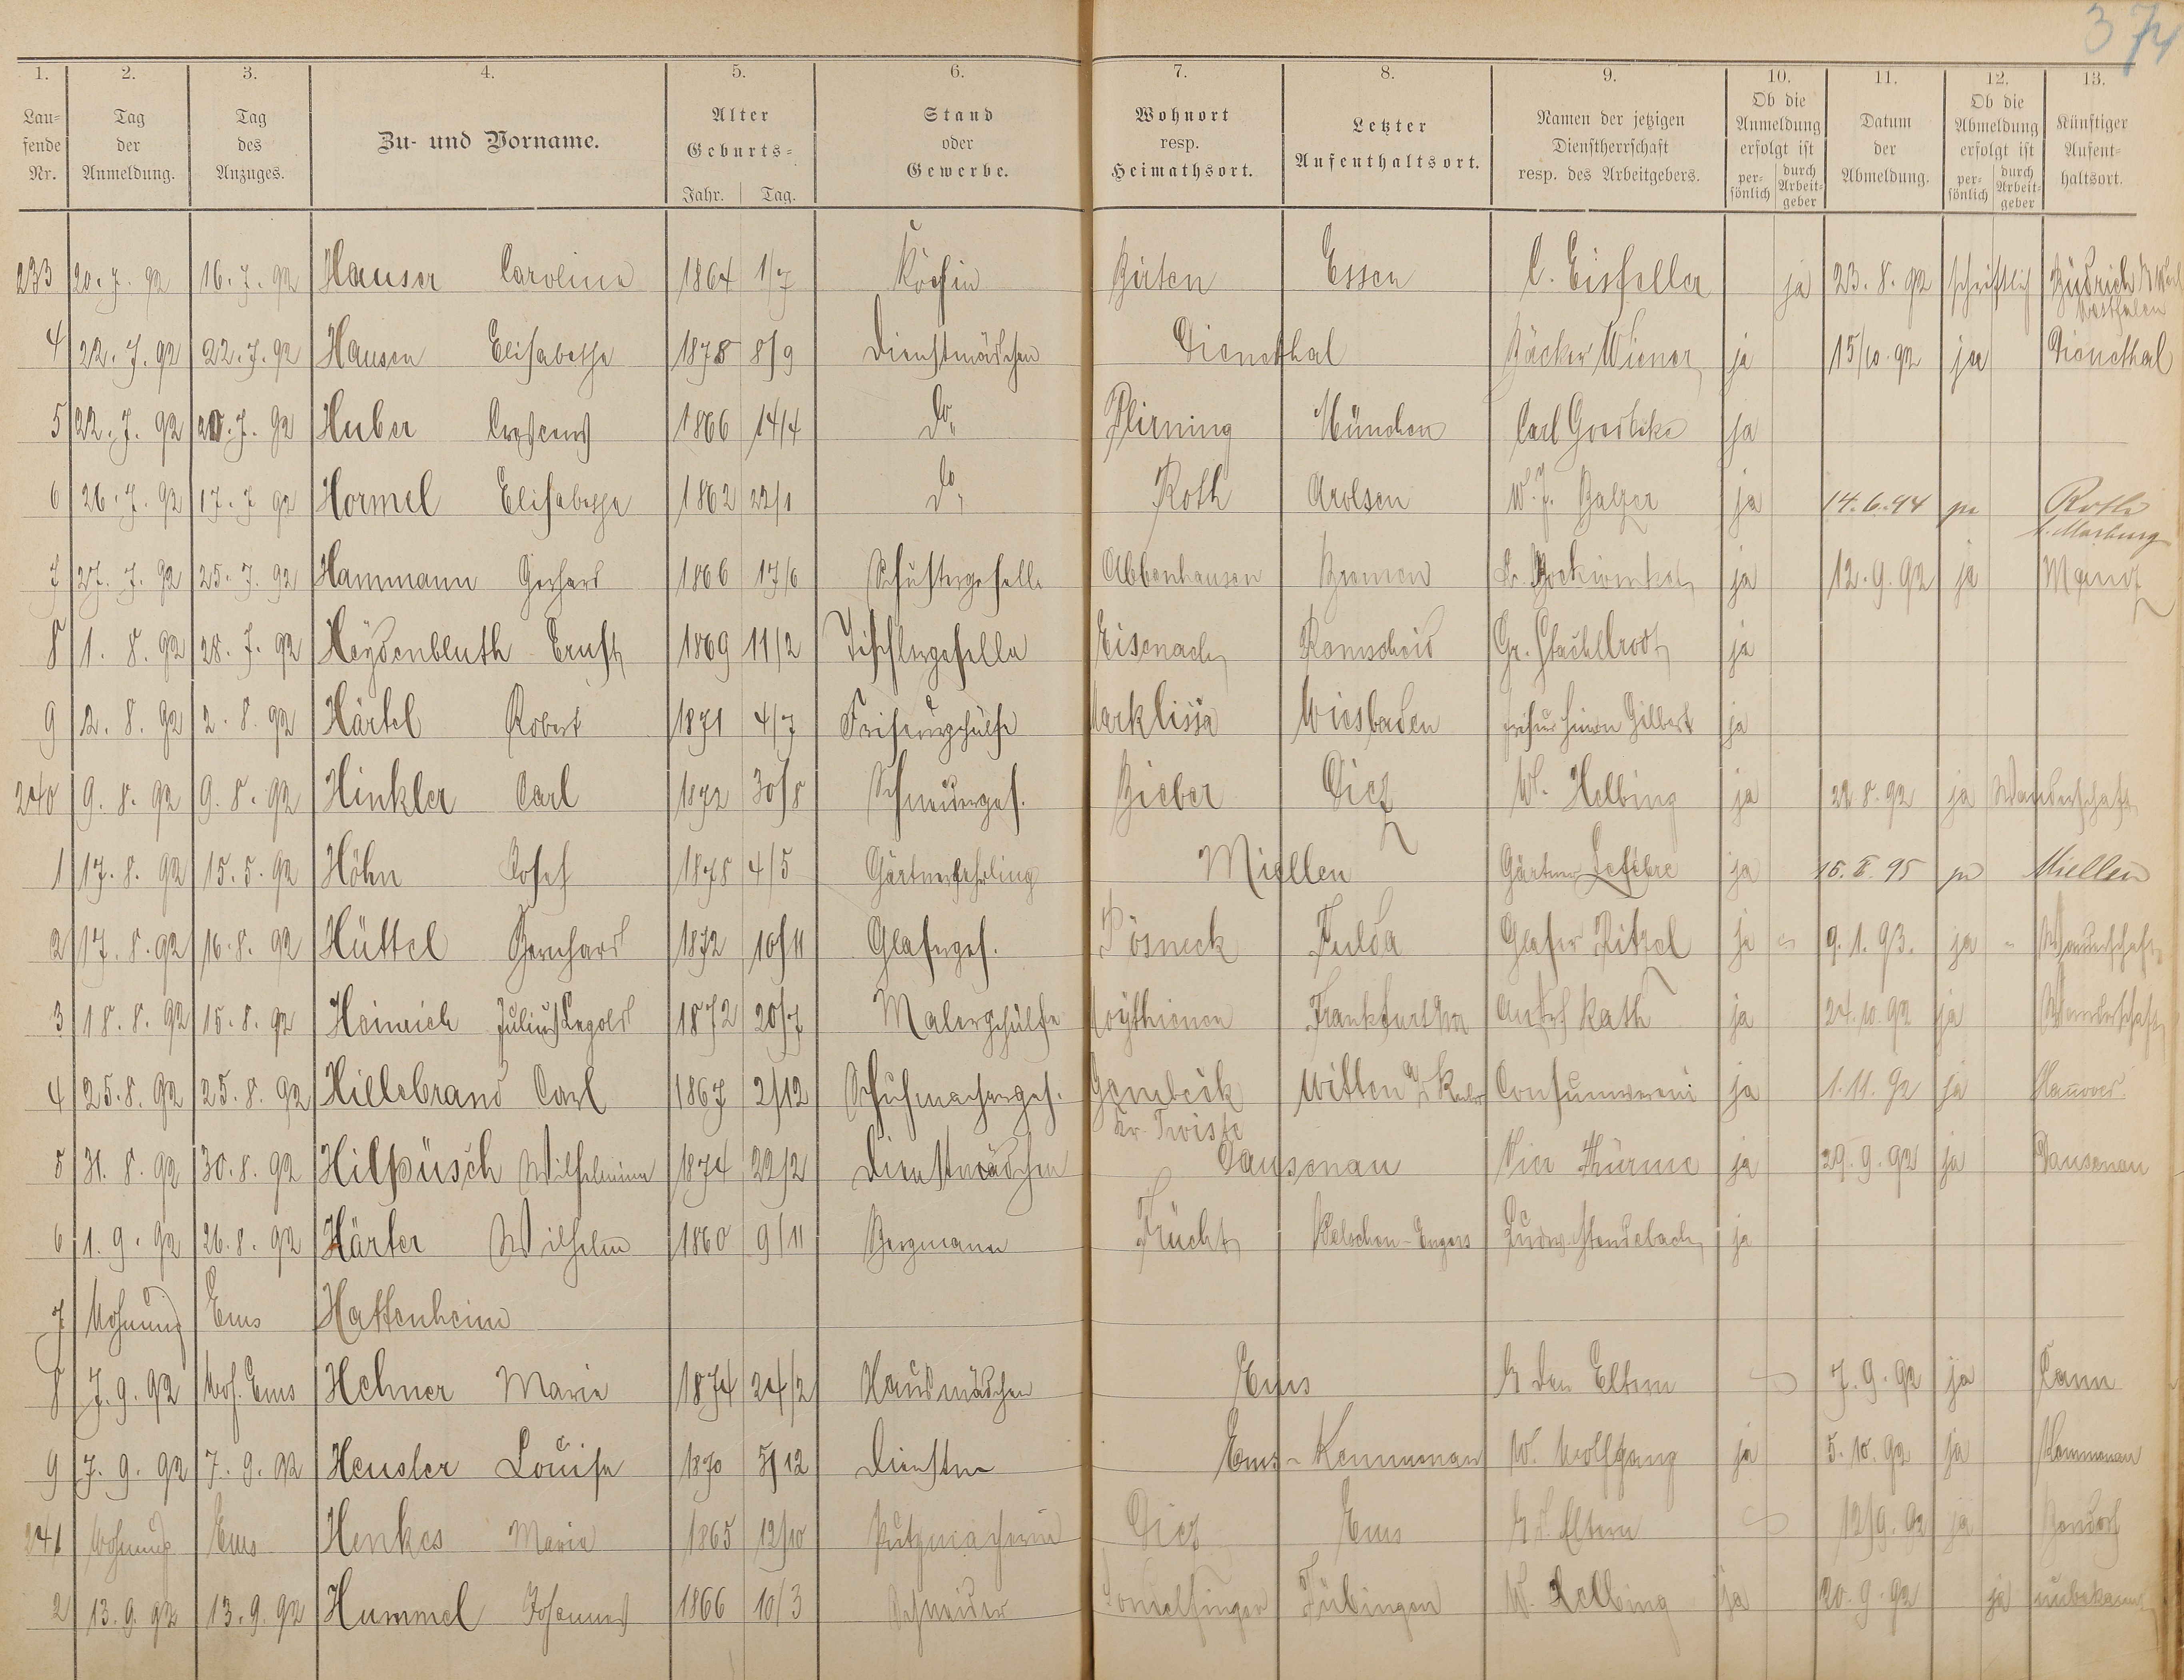 374
1. 2. 3. 4. 5. 6. 7. 8. 9. 10. 11. 12. 13.
Lau=fende Nr. Tag der Anmeldung. Tag des Anzuges. Zu- und Vorname. Alter Geburts= Jahr. Tag. Stand oder Gewerbe. Wohnort resp. Heimathsort. Letzter Aufenthaltsort. Namen der jetzigen Dienstherrschaft resp. des Arbeitgebers. Ob die Anmeldung erfolgt ist per=sönlich durch Arbeit=geber Datum der Abmeldung. Ob die Abmeldung erfolgt ist per=sönlich durch Arbeit=geber Künftiger Aufent=haltsort.
233 20. 7. 92 16. 7. 92 Hauser Caroline 1864 1/7 Köchin Birten Essen C. Eisfeller ja 23. 8. 92 schriftlich Büdrich
Westfalen
4 22. 7. 92 22. 7. 92 Hausen Elisabethe 1878 8/9 Dienstmädchen Dienethal Bäcker Wiener ja 15/10. 92 ja Dienethal
5 22. 7. 92 20. 7. 92 Huber Crescens 1866 14/4 do Plirning München Carl Goedtke ja
6 26. 7. 92 17. 7 92 Hormel Elisabethe 1862 22/1 do Roth Arolsen W. J. Balzer ja 14. 6. 94 ja Roth
b. Marburg
7 27. 7. 92 25. 7. 92 Hammann Gerhard 1866 17/6 Schustergeselle Abbenhausen Bremen ja 12. 9. 92 ja Mainz
8 1. 8. 92 28. 7. 92 Heydenbluth Ernst 1869 11/2 Tischlergeselle Eisenach Remscheid Gr. Stuchlbrodt ja
9 2. 8. 92 2. 8. 92 Härtel Robert 1871 4/7 Friseurgehülfe Marklissa Wiesbaden Friseur Simon Gilbert ja
240 9. 8. 92 9. 8. 92 Hinkler Carl 1872 30/8 Schneiderges. Bieber Diez W. Helbing ja 22. 8. 92 ja Wanderschaft
1 17. 8. 92 15. 5. 92 Höhn Josef 1878 4/5 Gärtnerlehrling Miellen Gärtner Lefèbre ja 15. II. 95 ja Miellen
2 17. 8. 92 16. 8. 92 Hüttel Bernhard 1872 10/11 Glaserges. Pösneck Fulda Glaser Ritzel ja 9. 1. 93. ja Wanderschaft
3 18. 8. 92 15. 8. 92 Heinrich Julius Leopold 1872 20/7 Malergehülfe Woythienen Frankfurt a/M Rath ja 24. 10. 92 ja Wanderschaft
4 25. 8. 92 25. 8. 92 Hillebrand Carl 1867 2/12 Schuhmacherges. Gembeck Witten a/ Ruhr Consumverein ja 1. 11. 92 ja Hannover
Kr. Twiste
5 31. 8. 92 30. 8. 92 Hilpüsch Wilhelmine 1874 22/2 Dienstmädchen Dausenau Vier Thürme ja 29. 9. 92 ja Dausenau
6 1. 9. 92 26. 8. 92 Härter Wilhelm 1860 9/11 Bergmann Frücht Welschen-Engers Ludw. Stendebach ja
7 Wohnung Ems Hattenheim
8 7. 9. 92 Woh. Ems Hehner Marie 1874 24/2 Hausmädchen Ems b den Eltern 7. 9. 92 ja Cann
9 7. 9. 92 7. 9. 92 Heusler Louise 1870 5/12 Dienstm Ems - Kemmenau W. Wolfgang ja 5. 10. 92 ja Kemmenau
241 Wohnung Ems Henkes Maria 1865 12/10 Putzmacherin Diez Ems b d. Eltern 12/9. 92 ja Bendorf
2 13. 9. 92 13. 9. 92 Hummel Johannes 1866 10/3 Schneider Tübingen W. Helbing ja 20. 9. 92 ja unbekannt